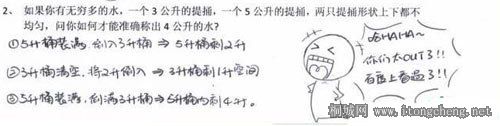 2、如果你有无穷多的水，一个 3 公升的提捅，一个 5 公升的提捅，两只提捅形状上下都不
均匀，问你如何才能准确称出 4 公升的水?
①5升桶装满，倒入3升桶 ⇒ 5升桶剩2升
②3升桶清空，将2升倒入 ⇒ 3升桶剩1升空间
③5升桶装满，倒满3升桶 ⇒ 5升桶内剩4升。
哈HAHA~
你们太OUT了!!
百度上看过了!!
桐城网 www.itongcheng.net